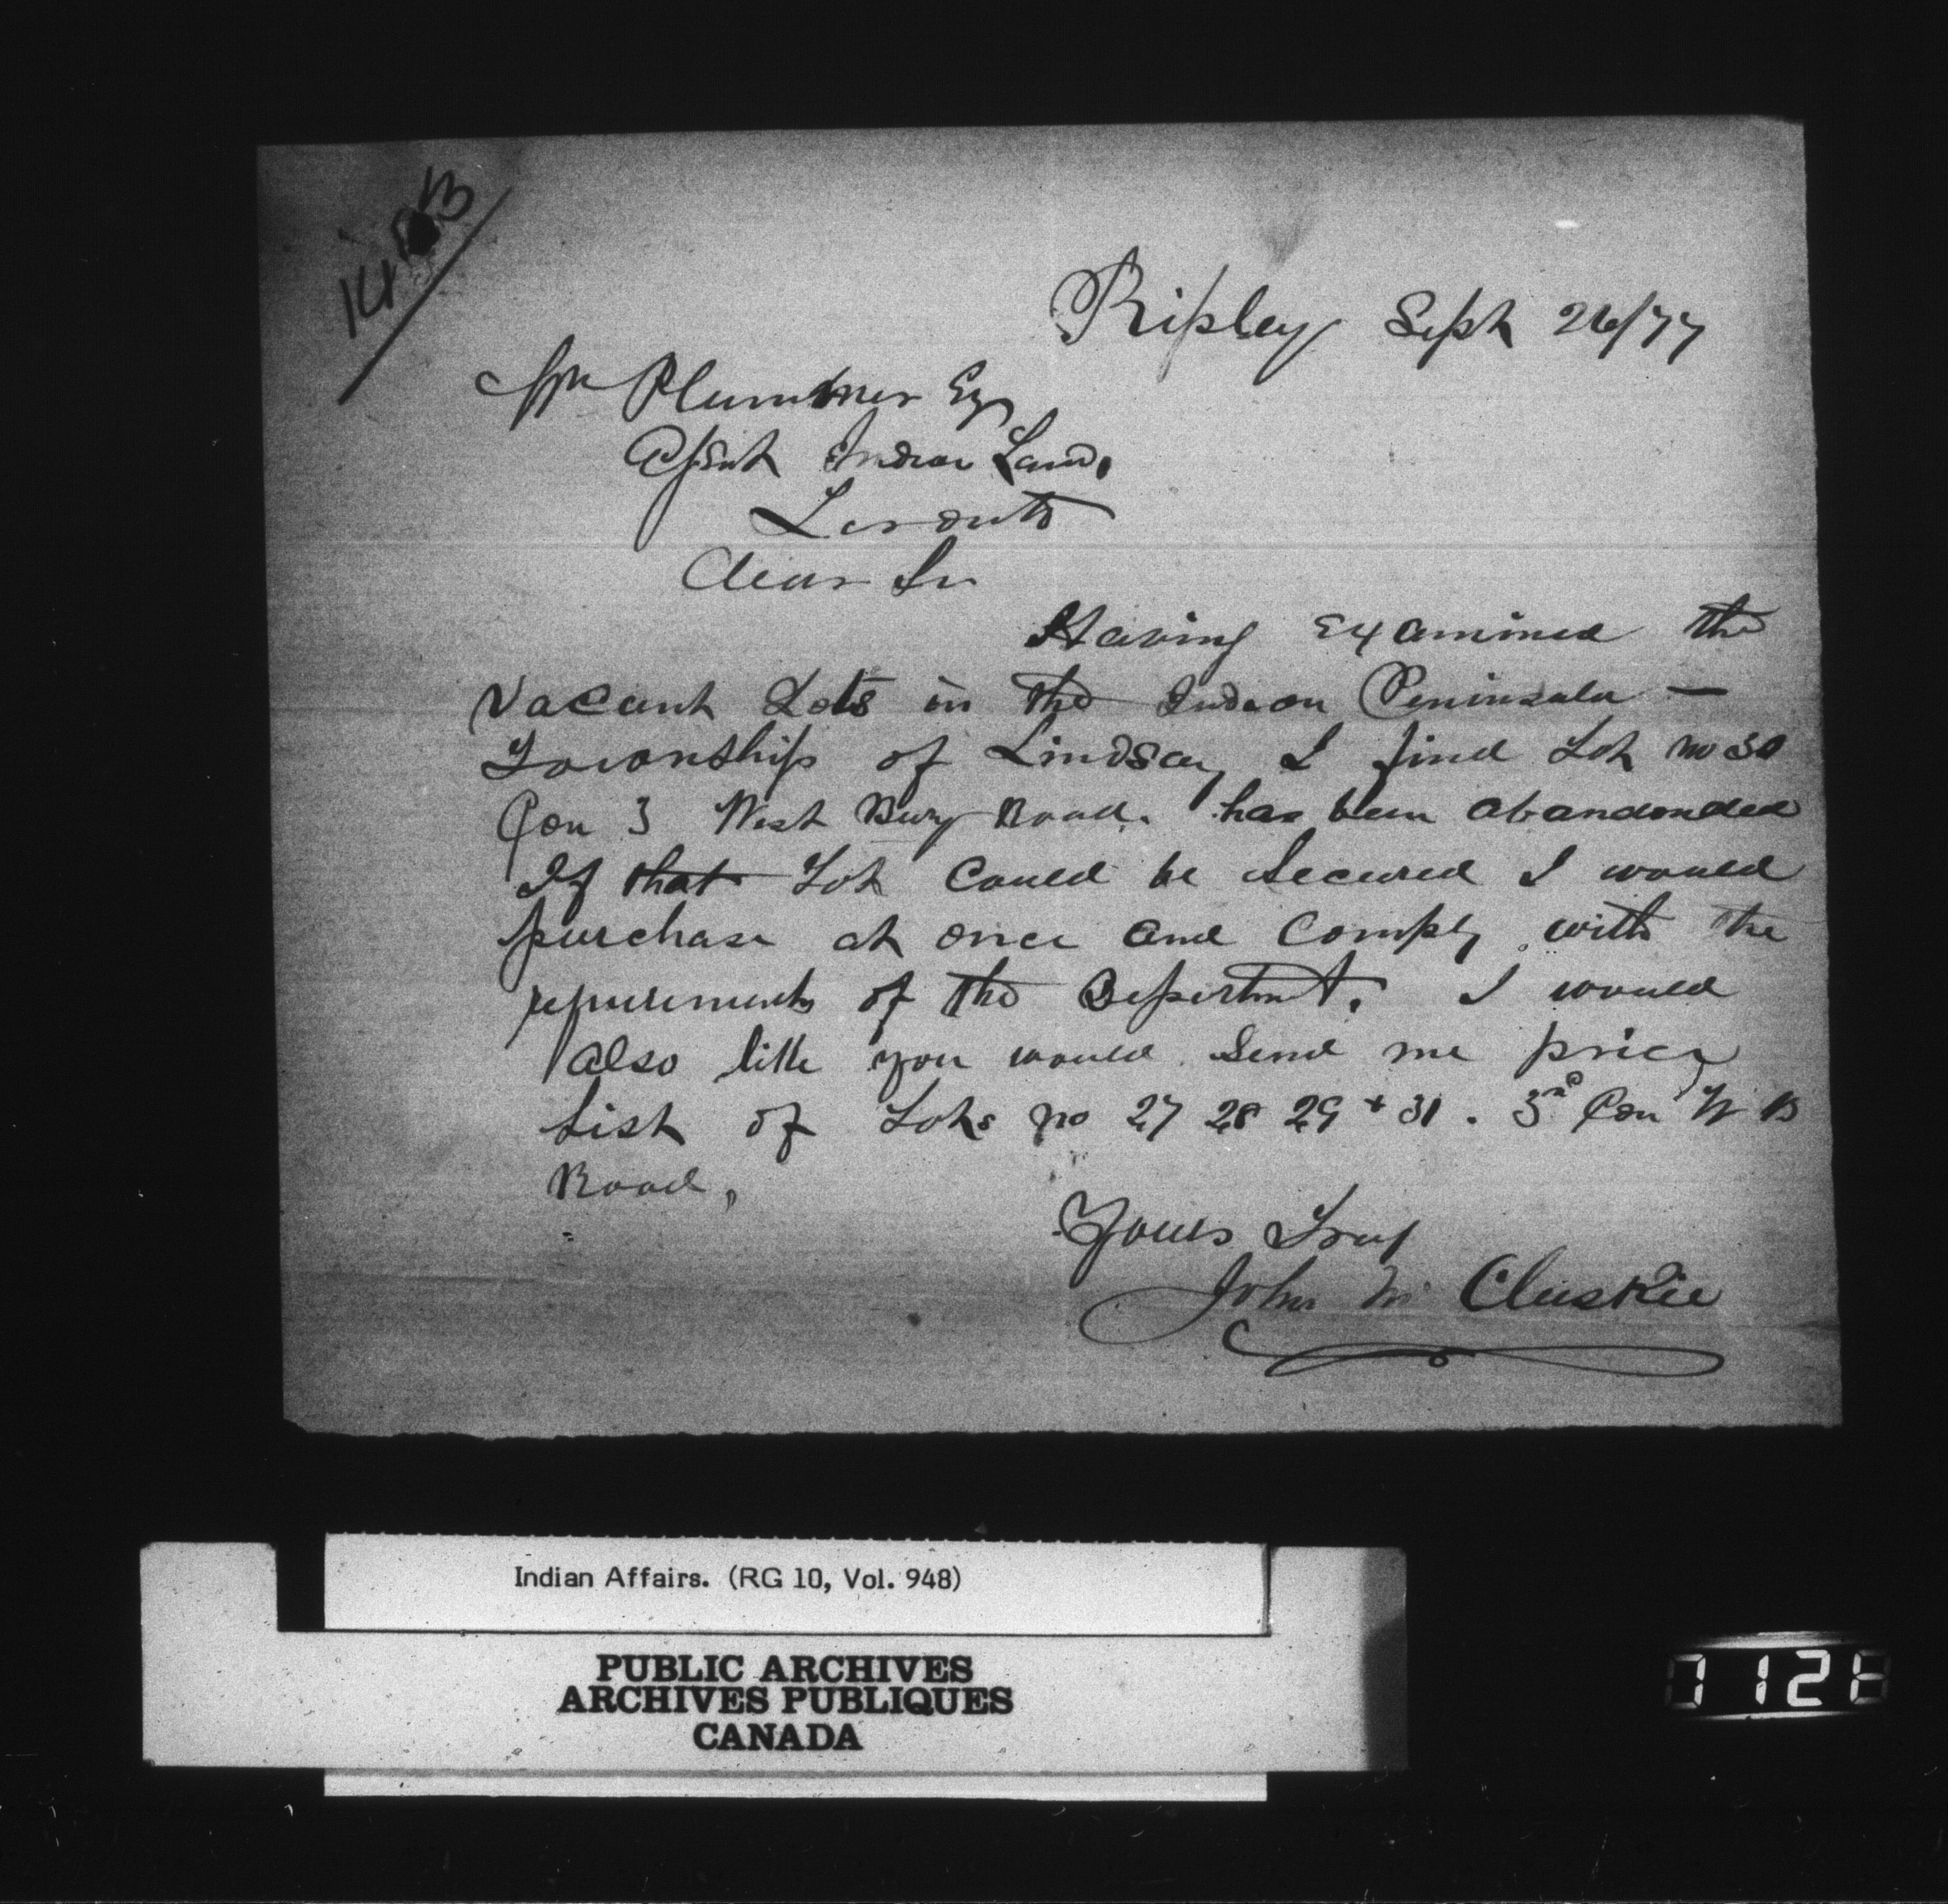 Ripley Sept 26/77
Wm Plummer Esq
Agent Indian Land,
Toronto
Dear Sir
Having Examined the
Vacant Lots in the Indian Peninsula —
Township of Lindsay I find Lot no 30
Con 3 West Bury Road. has been abandonded
If that Lot Could be Secured I would
purchase at once and Comply with the
requirements of the Department. I would
also like you would Send me price
List of Lots no 27 28 29 + 31. 3rd Con W B
Road,
Yours Truy
John Mc Cluskie
Indian Affairs. (RG 10, Vol. 948)
PUBLIC ARCHIVES
ARCHIVES PUBLIQUES
CANADA